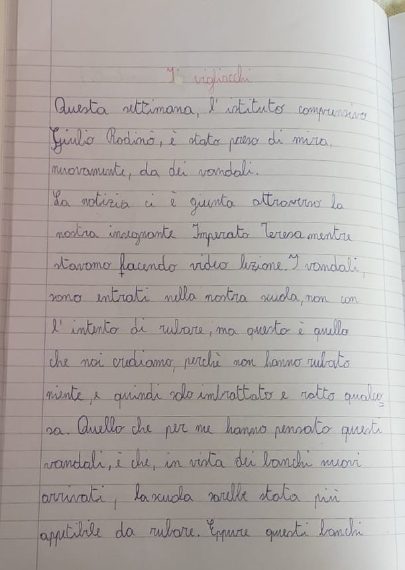 I vigliacchi
Questa settimana, l'istituto comprensivo
Giulio Rodinò, è stato preso di mira,
nuovamente, da dei vandali.
La notizia ci è giunta attraverso la
nostra insegnante Imperato Teresa mentre
stavamo facendo video lezione. I vandali,
sono entrati nella nostra scuola, non con
l'intento di rubare, ma questo è quello
che noi crediamo, perchè non hanno rubato
niente, e quindi solo imbrattato e rotto qualco
sa. Quello che per me hanno pensato questi
vandali, è che, in vista dei banchi nuovi
arrivati, la scuola sarebbe stata più
appetibile da rubare. Eppure questi banchi